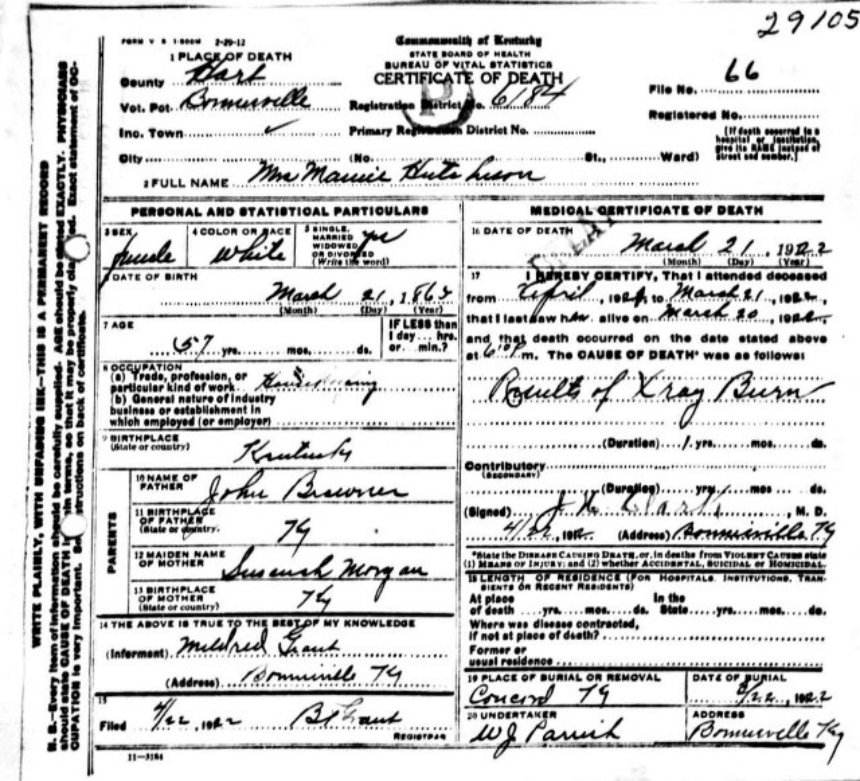 29105
FORM V S 1-500M 2-29-12
Commonwealth of Kentucky
STATE BOARD OF HEALTH
BUREAU OF VITAL STATISTICS
CERTIFICATE OF DEATH
1 PLACE OF DEATH
County Hart
Vot. Pct. Bonnieville
Inc. Town
City (No. St., Ward)
Registration District No. 6184
Primary Registration District No.
File No. 66
Registered No.
[If death occurred in a hospital or institution, give its NAME instead of street and number.]
2 FULL NAME Mrs Mamie Hutchison
PERSONAL AND STATISTICAL PARTICULARS
3 SEX female
4 COLOR OR RACE White
5 SINGLE, MARRIED WIDOWED OR DIVORCED (Write the word)
6 DATE OF BIRTH
March 21, 186
(Month) (Day) (Year)
7 AGE
57 yrs. mos. ds.
IF LESS than 1 day... hrs. or min.?
8 OCCUPATION
(a) Trade, profession, or particular kind of work
(b) General nature of industry business or establishment in which employed (or employer)
9 BIRTHPLACE
(State or country) Kentucky
PARENTS
10 NAME OF FATHER John
11 BIRTHPLACE OF FATHER (State or country) Ky
12 MAIDEN NAME OF MOTHER Susanah Morgan
13 BIRTHPLACE OF MOTHER (State or country) Ky
14 THE ABOVE IS TRUE TO THE BEST OF MY KNOWLEDGE
(Informant) Mildred Grant
(Address) Bonnieville Ky
15
Filed 4/22, 1922 Grant
REGISTRAR
11-3184
MEDICAL CERTIFICATE OF DEATH
16 DATE OF DEATH
March 21, 1922
(Month) (Day) (Year)
17 I HEREBY CERTIFY, That I attended deceased
from April, 192 to March 21, 1922,
that I last saw her alive on March 20, 1922,
and that death occurred on the date stated above
at m. The CAUSE OF DEATH* was as follows:
Results of Xray Burn
(Duration) 1 yrs. mos. ds.
Contributory
(SECONDARY)
(Duration) yrs. mos. ds.
(Signed) J. , M. D.
4/22, 192 (Address) Bonnieville Ky
*State the DISEASE CAUSING DEATH, or, in deaths from VIOLENT CAUSES state
(1) MEANS OF INJURY; and (2) whether ACCIDENTAL, SUICIDAL or HOMICIDAL.
18 LENGTH OF RESIDENCE (FOR HOSPITALS, INSTITUTIONS, TRANSIENTS OR RECENT RESIDENTS)
At place of death yrs. mos. ds. In the State yrs. mos. ds.
Where was disease contracted,
if not at place of death?
Former or
usual residence
19 PLACE OF BURIAL OR REMOVAL
Concord Ky
DATE OF BURIAL
3/22, 1922
20 UNDERTAKER
W J Parrish
ADDRESS
Bonnieville Ky
WRITE PLAINLY, WITH UNFADING INK—THIS IS A PERMANENT RECORD
N. B.—Every item of information should be carefully supplied. AGE should be stated EXACTLY. PHYSICIANS
should state CAUSE OF DEATH in plain terms, so that it may be properly classified. Exact statement of OC-
CUPATION is very important. See instructions on back of certificate.